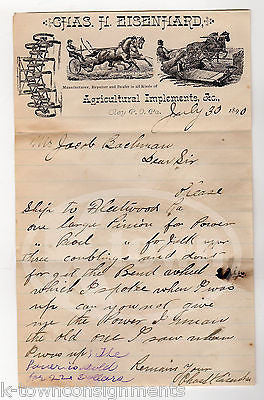 CHAS. H. EISENHARD,
Manufacturer, Repairer and Dealer in all Kinds of
Agricultural Implements, &c.,
P. O. Pa. July 23 1890
Mr Jacob Bachman
Dear Sir
Please
Ship to Fleetwood Pa
one large Pinion for Power
" Rod " for Jack
three couplings and dont
for get the Bend
which I spoke when I was
up can you not give
me the Power I mean
the old one I saw when
I was up; the
Power is sold
for 22 Dollars
Remain Your
k-townconsignments
k-townconsignments.com